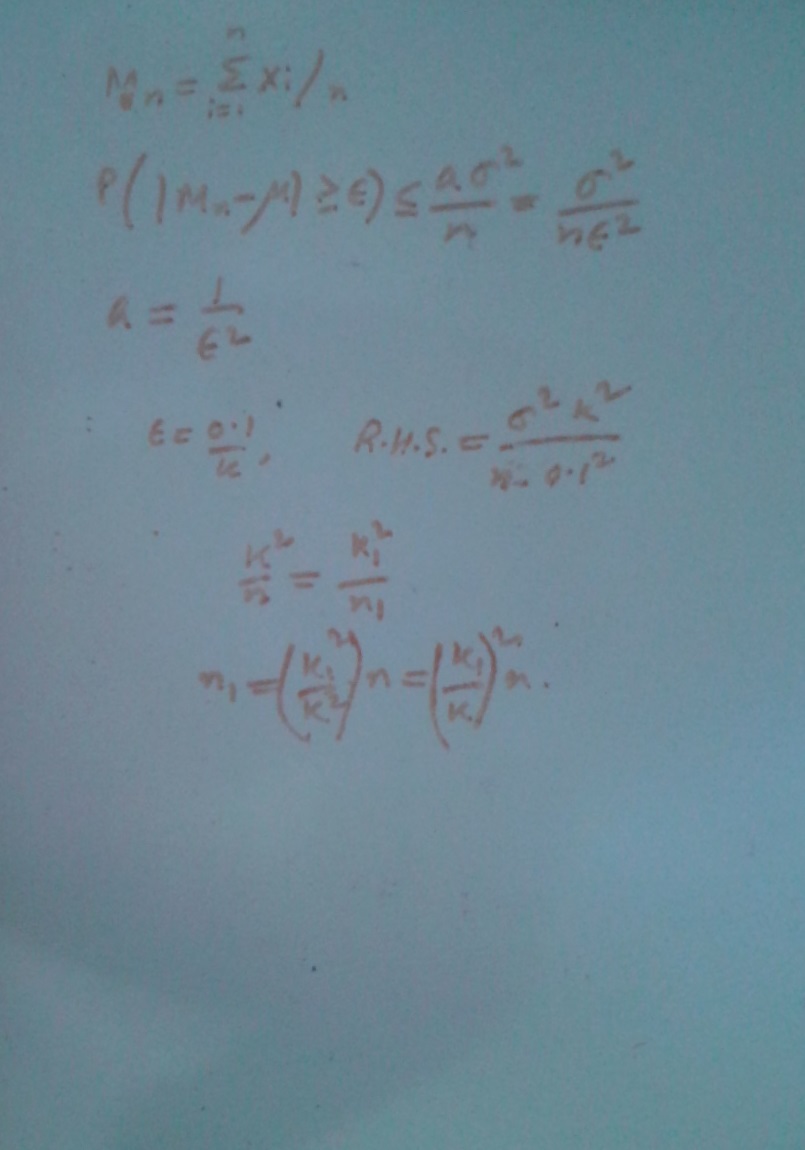 Mₙ = Σⁿᵢ₌₁ xi / n
P(|Mₙ-μ| ≥ ϵ) ≤ aσ²/n = σ²/nϵ²
a = 1/ϵ²
ϵ = 0.1/k, R.H.S. = σ² k²/n. 0.1²
k²/n = k₁²/n₁
n₁ = (k₁²/k²)n = (k₁/k)² n.